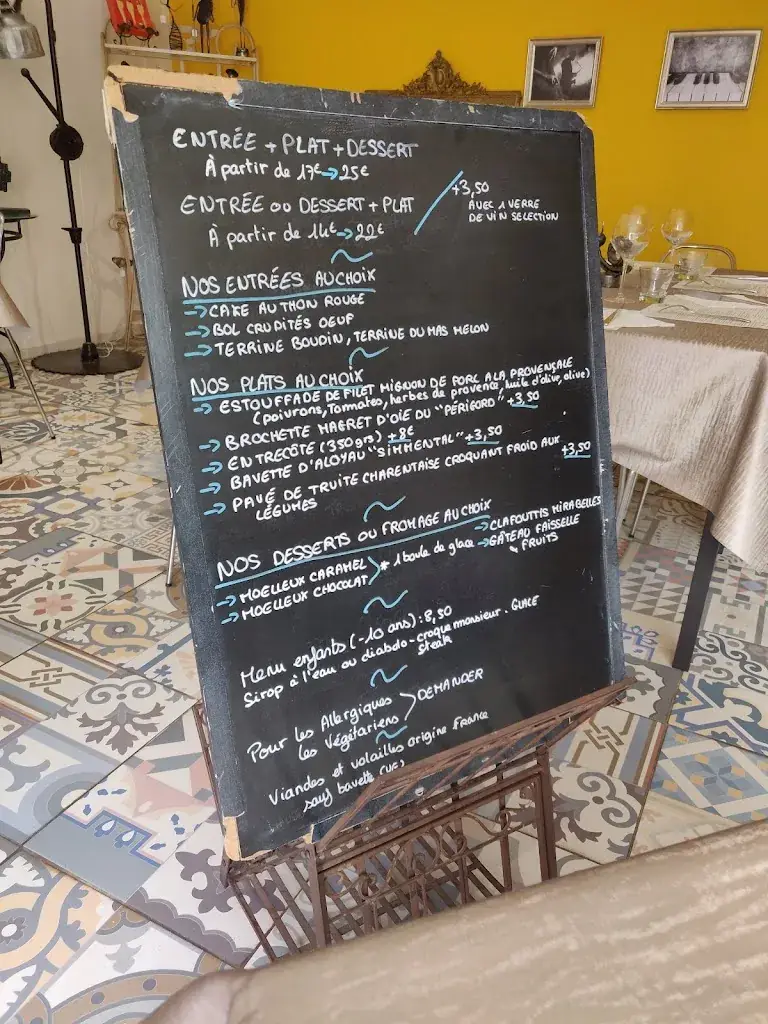 ENTRÉE + PLAT + DESSERT
À partir de 17€ → 25€
ENTRÉE ou DESSERT + PLAT
À partir de 14€ → 22€
+3,50
AVEC 1 VERRE
DE VIN SELECTION
NOS ENTRÉES AU CHOIX
→ CAKE AU THON ROUGE
→ BOL CRUDITÉS OEUF
→ TERRINE BOUDIN, TERRINE DU MAS MELON
NOS PLATS AU CHOIX
→ ESTOUFFADE DE FILET MIGNON DE PORC A LA PROVENÇALE
(poivrons, Tomates, herbes de provence, huile d'olive, olive)
→ BROCHETTE MAGRET D'OIE DU "PÉRIGORD" +3,50
→ ENTRECÔTE (350grs) +8€
→ BAVETTE D'ALOYAU "SIMMENTAL" +3,50
→ PAVÉ DE TRUITE CHARENTAISE CROQUANT FROID AUX +3,50
LÉGUMES
NOS DESSERTS OU FROMAGE AU CHOIX
→ MOELLEUX CARAMEL
→ MOELLEUX CHOCOLAT
* 1 boule de glace
→ CLAFOUTTIS MIRABELLES
→ GÂTEAU FAISSELLE
FRUITS
Menu enfants (-10 ans) : 8,50
Sirop à l'eau ou diabdo - croque monsieur . GLACE
steak
Pour les Allergiques
les Végétariens
DEMANDER
Viandes et volailles origine France
sauf bavette (UE)